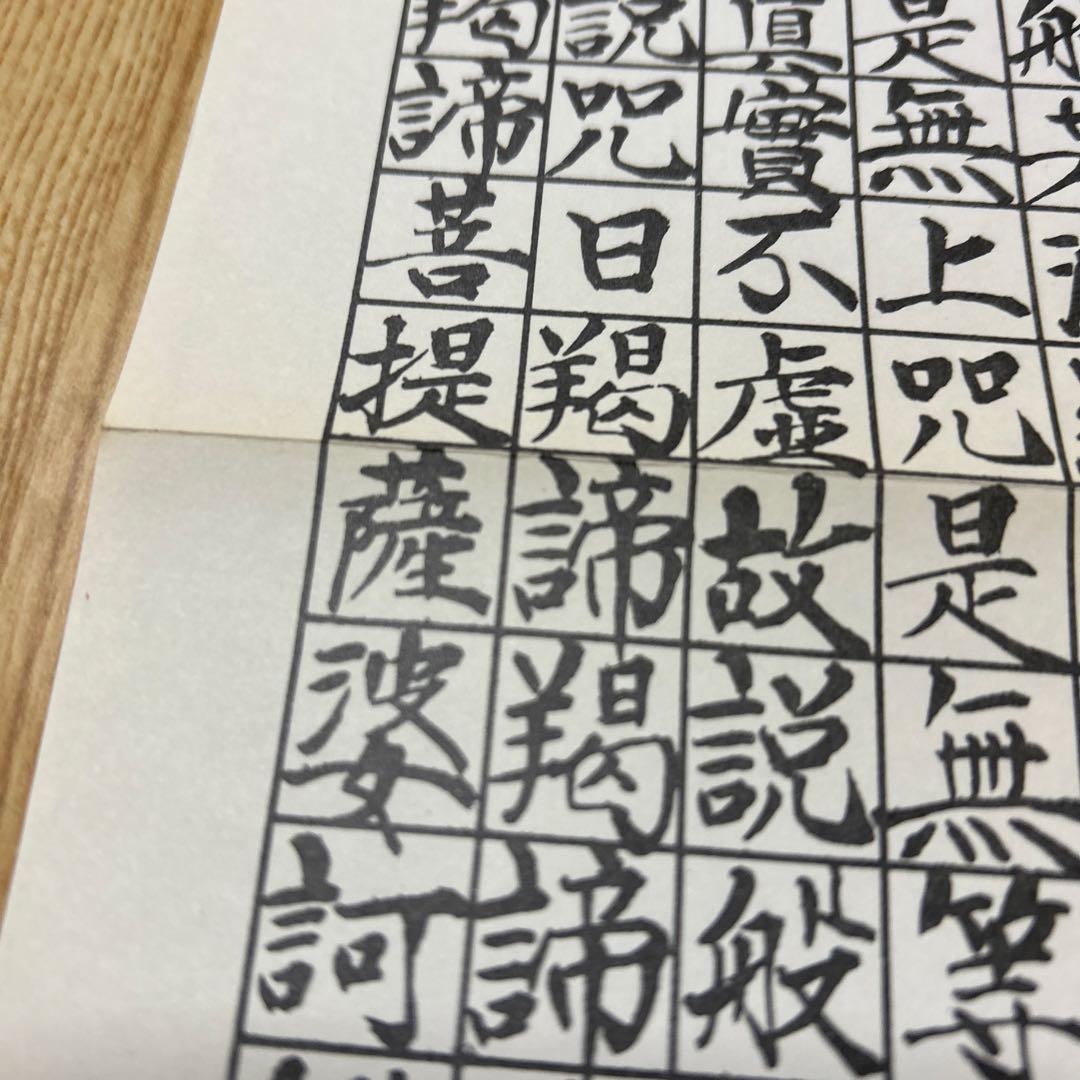 是無上咒是無等
眞實不虛故説般
説咒曰羯諦羯諦
羯諦菩提薩婆訶